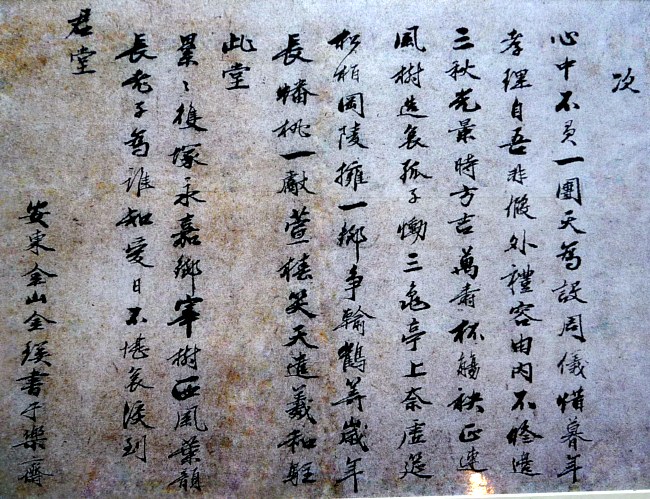 次
心中不負一團天為設周儀惜暮年
孝理自吾非假外禮容由內不修邊
三秋光景時方吉萬壽杯觴袂正連
風樹哀孤子慟三龜亭上奈虛筵
松栢岡陵擁一鄉爭輸鶴筭歲年
長蟠桃一獻萱椿笑天遣羲和駐
此堂
累〻後塚永嘉鄉宰樹西風葉韻
長老子為誰知愛日不堪哀淚到
君堂
安東金山金書于樂齋